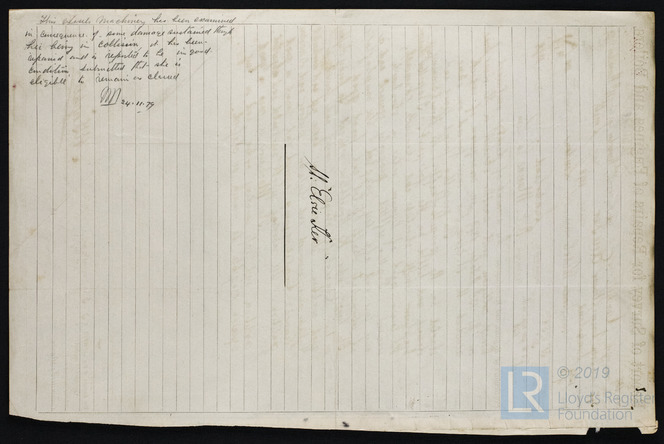 This vessels Machinery has been examined
in consequence of some damage sustained through
her being in collision it has been
repaired and is reported to be in good
condition submitted that she is
eligible to remain as classed
24.11.79
© 2019
LR
Lloyd's Register
Foundation